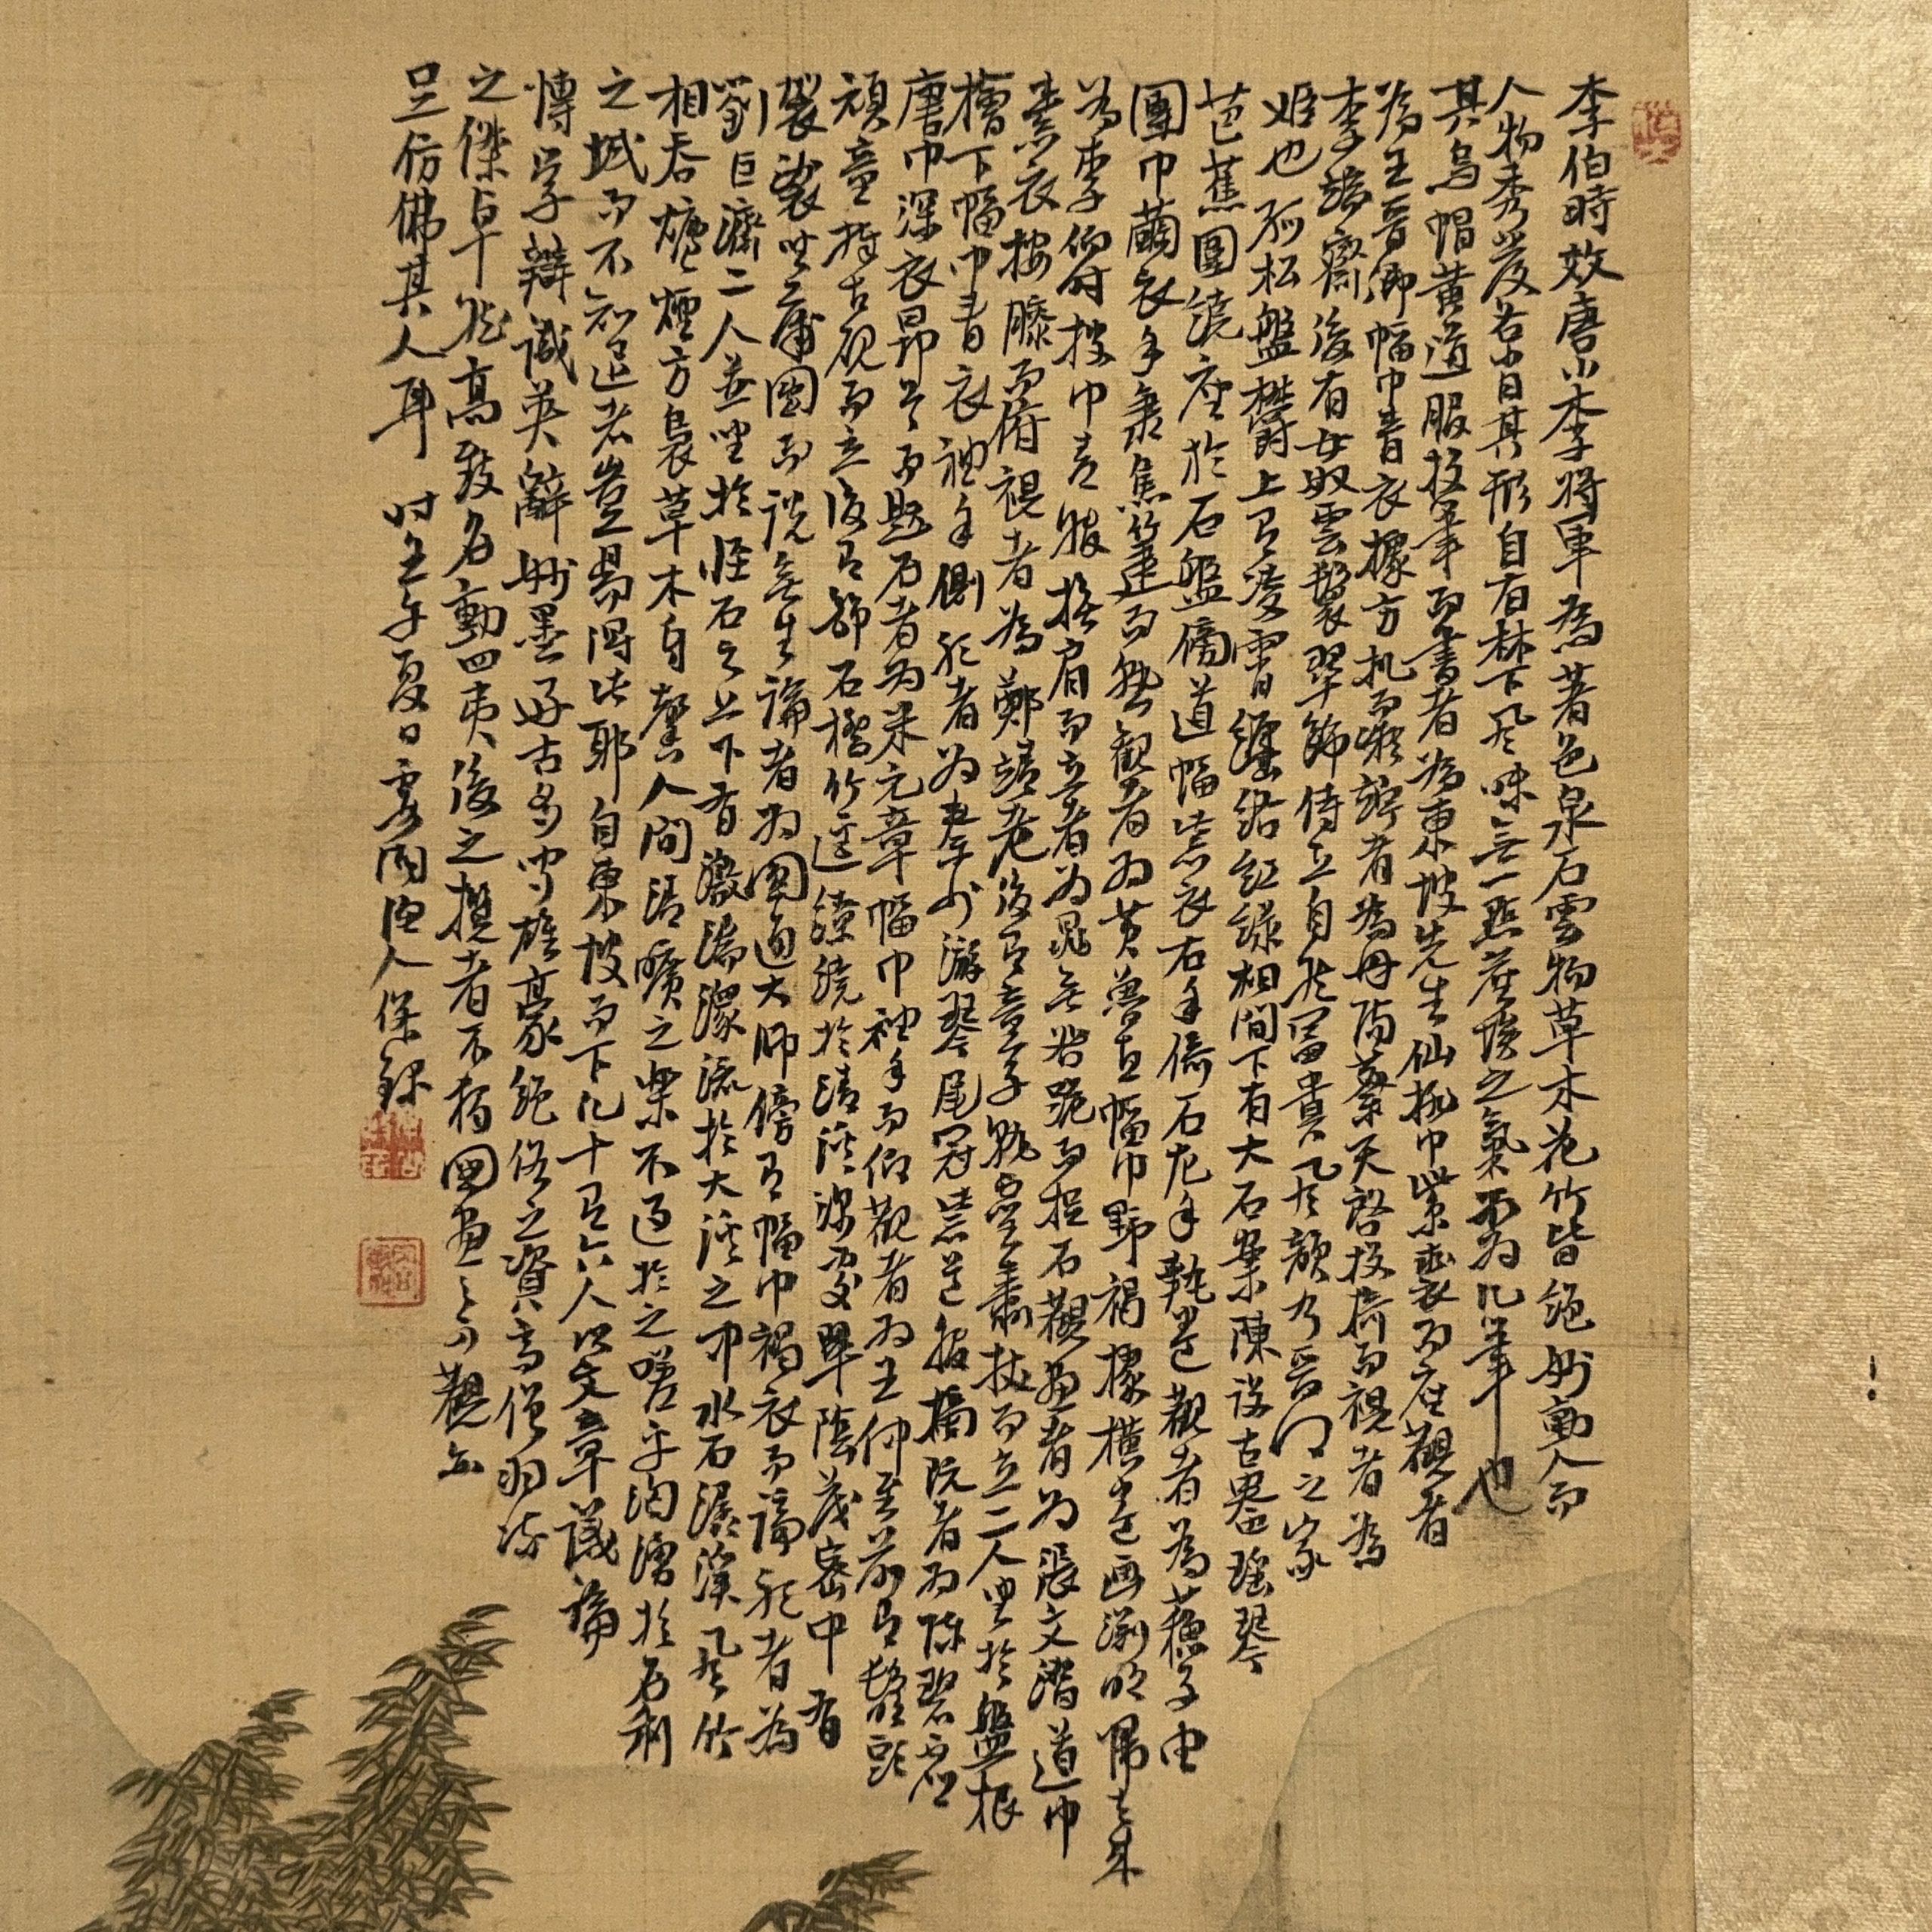 李伯時效唐小李將軍為著色泉石雲物草木花竹皆絕妙動人而
人物秀發各肖其形自有林下風味無一點塵埃之氣不為凡筆也
其烏帽黃道服捉筆而書者為東坡先生仙桃巾紫裘而坐觀者
為王晉卿幅巾青衣據方机而凝竚者為丹陽蔡天啓捉椅而視者為
李端齋後有女奴雲鬟翠飾侍立自然富貴風韻乃晉卿之家
姬也孤松盤鬱上有凌霄纏絡紅綠相間下有大石案陳設古器瑤琴
芭蕉圍繞座於石盤傍道帽紫衣右手倚石左手執卷觀者為蘓子由
團巾繭衣手秉蕉箑而熟觀者為黃魯直幅巾野褐據橫卷画淵明歸去來
為李伯時披巾青服撫肩而立者為晁無咎跪而捉石觀畫者為張文潛道巾
素衣按膝而俯視者為鄭靖老後有童子執靈壽杖而立二人坐於盤根
檜下幅巾青衣袖手側聽者為秦少游琴尾冠紫道服摘阮者為陳碧虛
唐巾深衣昂首而題石者為米元章幅巾袖手而仰觀者為王仲至前有鬅頭
頑童持古硯而立後有錦石橋竹逕繚繞於清溪深處翠陰茂密中有
袈裟坐蒲團而說無生論者為圓通大師傍有幅巾褐衣而諦聽者為
劉巨濟二人並坐於怪石之上下有激湍潨流於大溪之中水石潺湲風竹
相吞爐煙方裊草木自馨人間清曠之樂不過於之嗟乎洶湧於名利
之域而不知退者豈易得此耶自東坡而下凡十有六人以文章議論
博學辯識英辭妙墨好古多聞雄豪絕俗之資高僧羽流
之傑卓然高致名動四夷後之攬者不獨圖畫之可觀亦
足仿佛其人耳 時壬午夏日雲間 人保錄